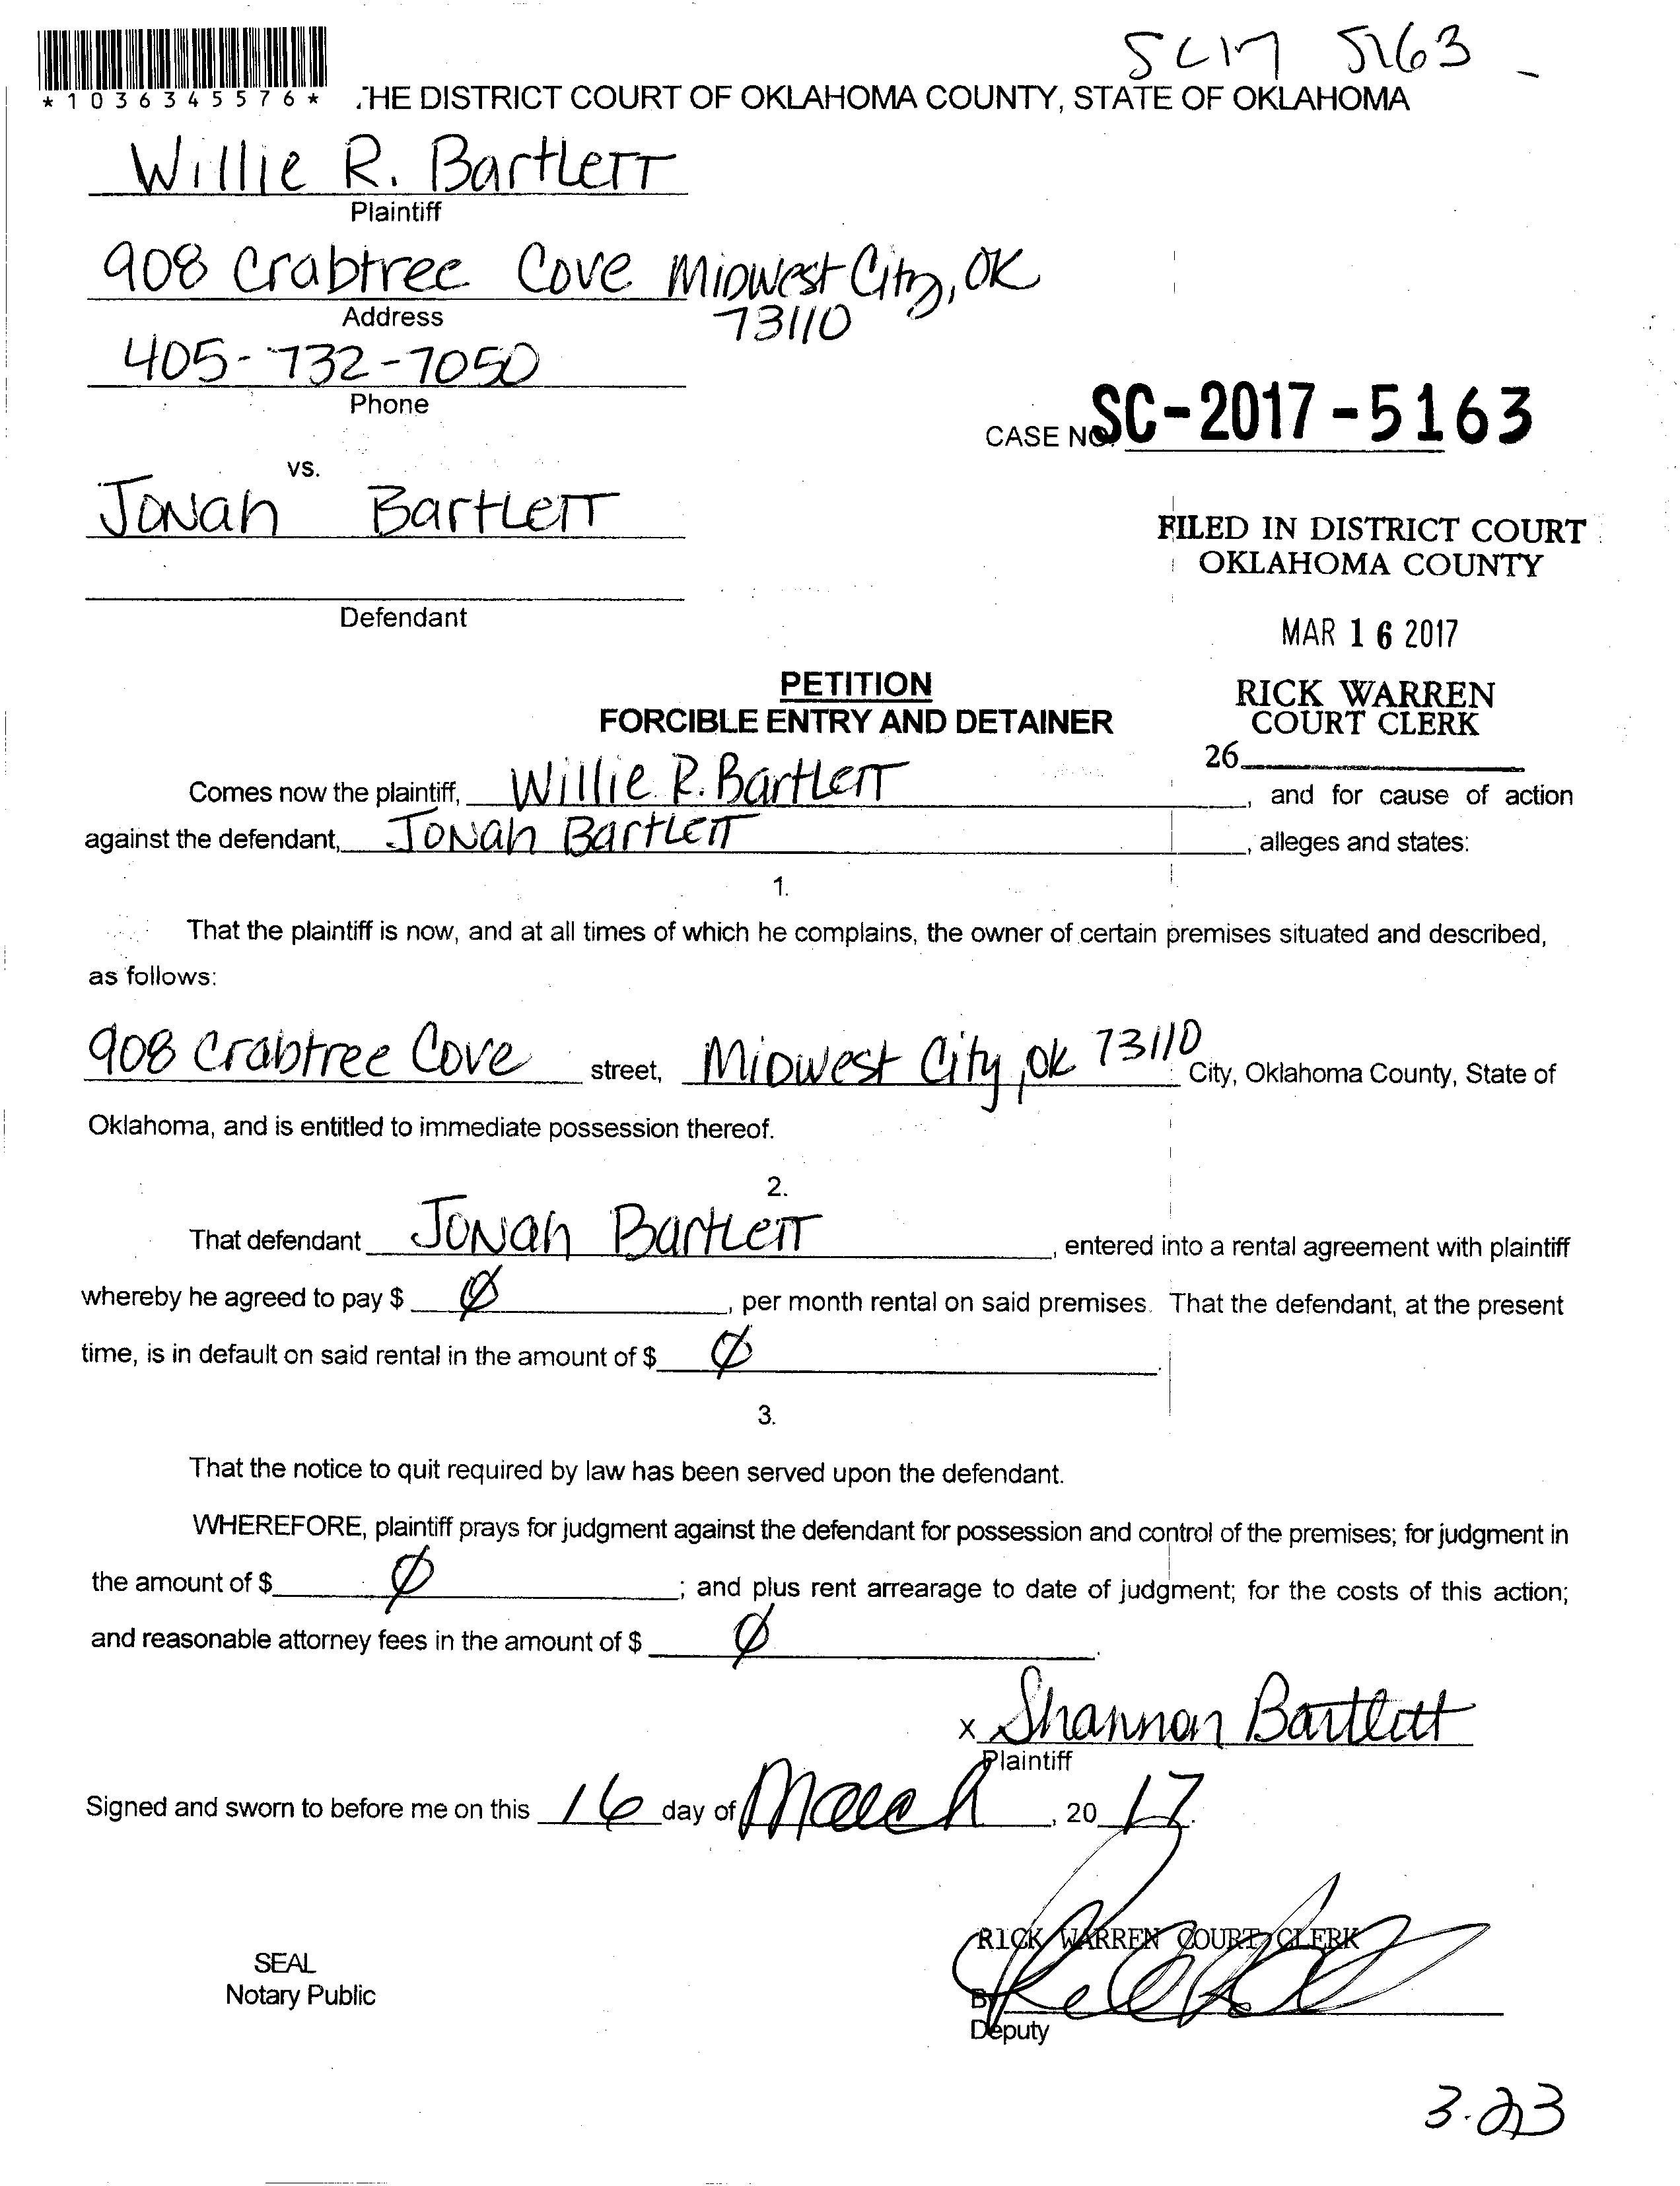 SC17 5163 -
*1036345576*
THE DISTRICT COURT OF OKLAHOMA COUNTY, STATE OF OKLAHOMA
Willie R. Bartlett
Plaintiff
908 Crabtree Cove Midwest City, OK
Address
73110
405-732-7050
Phone
CASE NO. SC-2017-5163
vs.
Jonah Bartlett
FILED IN DISTRICT COURT
OKLAHOMA COUNTY
Defendant
MAR 16 2017
PETITION
FORCIBLE ENTRY AND DETAINER
RICK WARREN
COURT CLERK
26
Comes now the plaintiff, Willie R. Bartlett, and for cause of action
against the defendant, Jonah Bartlett, alleges and states:
1.
That the plaintiff is now, and at all times of which he complains, the owner of certain premises situated and described,
as follows:
908 Crabtree Cove street, Midwest City, OK 73110 City, Oklahoma County, State of
Oklahoma, and is entitled to immediate possession thereof.
2.
That defendant Jonah Bartlett, entered into a rental agreement with plaintiff
whereby he agreed to pay $ Ø, per month rental on said premises. That the defendant, at the present
time, is in default on said rental in the amount of $ Ø.
3.
That the notice to quit required by law has been served upon the defendant.
WHEREFORE, plaintiff prays for judgment against the defendant for possession and control of the premises; for judgment in
the amount of $ Ø; and plus rent arrearage to date of judgment; for the costs of this action;
and reasonable attorney fees in the amount of $ Ø.
x Shannon Bartlett
Plaintiff
Signed and sworn to before me on this 16 day of March, 2017.
RICK WARREN COURT CLERK
SEAL
Notary Public
By
Deputy
3.23